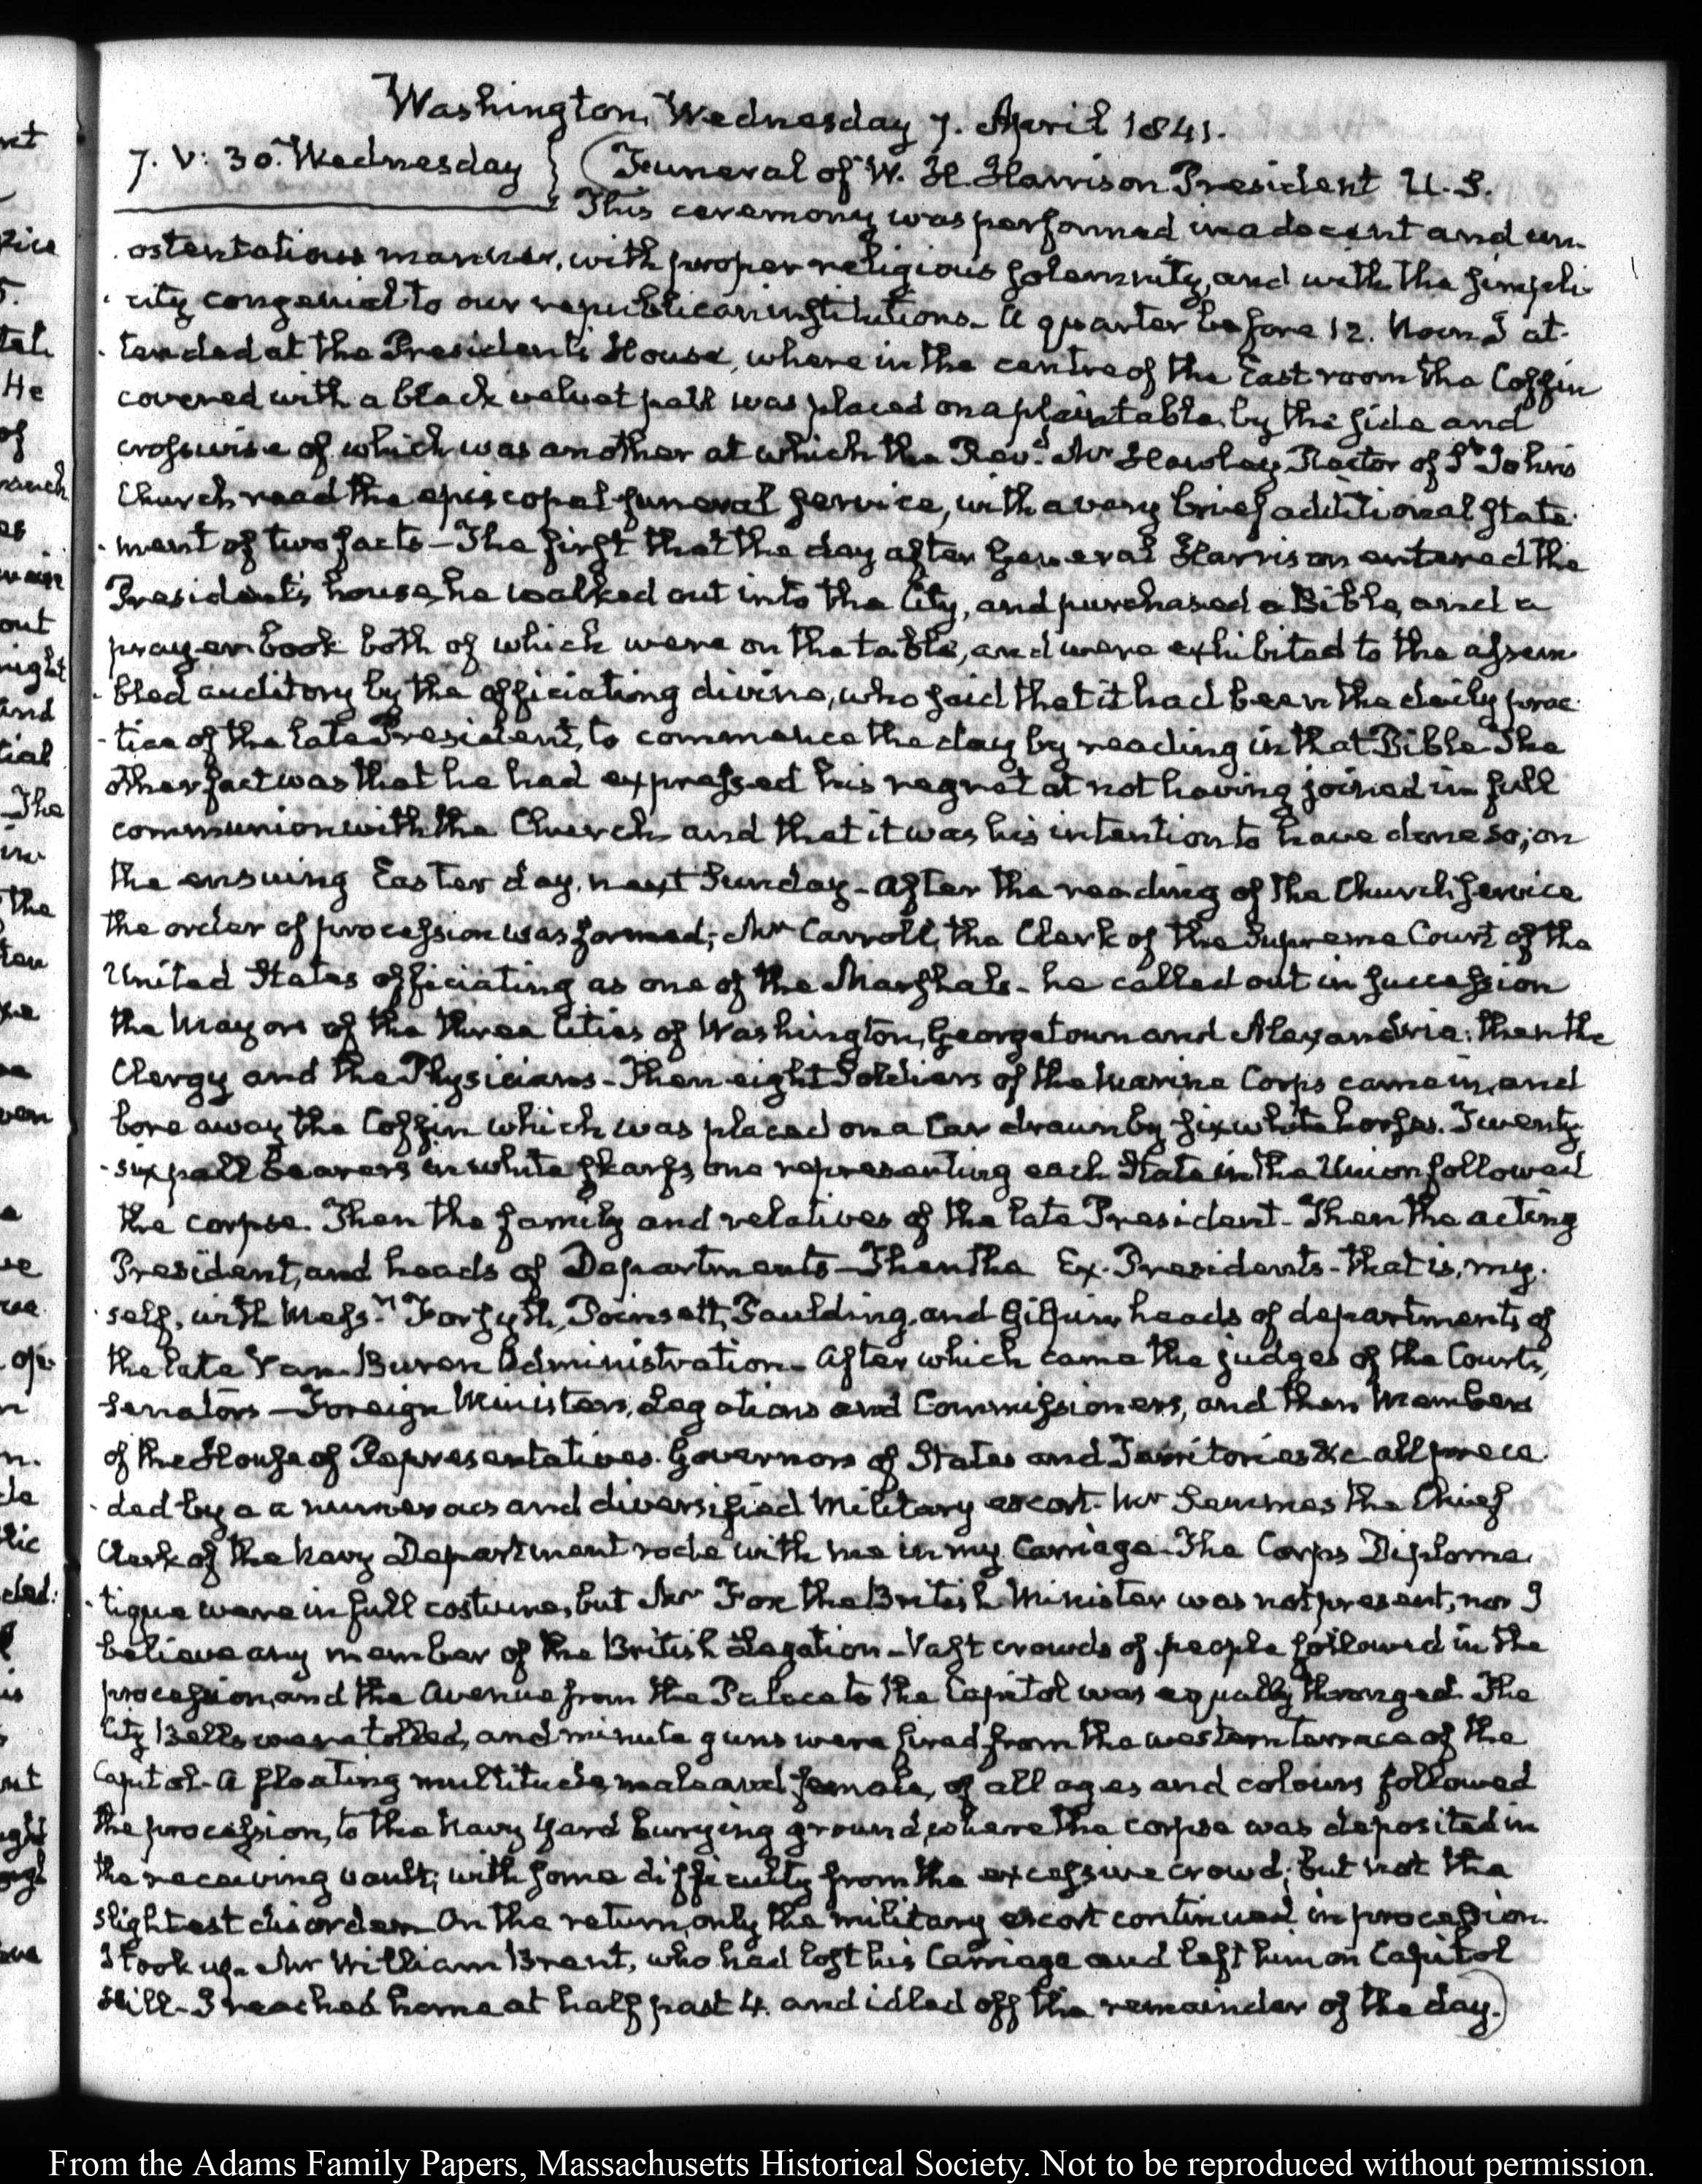 Washington, Wednesday 7. April 1841.
7. V: 30. Wednesday } (Funeral of W. H. Harrison President U. S.
This ceremony was performed in a decent and un-
ostentatious manner, with proper religious solemnity, and with the simpli-
city congenial to our republican institutions. A quarter before 12. Noon I at-
tended at the President's House, where in the centre of the East room the Coffin
covered with a black velvet pall was placed on a plain table, by the side and
crosswise of which was another at which the Revd. Mr Hawley Rector of St Johns
Church read the episcopal funeral service, with a very brief additional state-
ment of two facts—The first that the day after General Harrison entered the
President's house, he walked out into the City, and purchased a Bible, and a
prayer book both of which were on the table, and were exhibited to the assem-
bled auditory by the officiating divine, who said that it had been the daily prac-
tice of the late President, to commence the day by reading in that Bible. The
other fact was that he had expressed his regret at not having joined in full
communion with the Church and that it was his intention to have done so; on
the ensuing Easter day, next Sunday - After the reading of the Church service
the order of procession was formed; Mr Carroll, the Clerk of the Supreme Court of the
United States officiating as one of the Marshals - he called out in succession
the Mayors of the three Cities of Washington, Georgetown and Alexandria: then the
Clergy and the Physicians - Then eight Soldiers of the Marine Corps came in, and
bore away the Coffin which was placed on a Car drawn by six white horses. Twenty-
-six pall bearers in white skarfs, one representing each State in the Union followed
the corpse. Then the family and relatives of the late President - Then the acting
President, and heads of Departments—Then the Ex-Presidents - that is, my-
self, with Messrs Forsyth, Poinsett, Paulding, and Gilpin, heads of departments of
the late Van Buren Administration - After which came the judges of the Courts,
Senators—Foreign Ministers, Legations and Commissioners, and then Members
of the House of Representatives. Governors of States and Territories &c all prece-
ded by a a numerous and diversified Military escort. Mr Semmes the Chief
Clerk of the Navy Department rode with me in my Carriage - The Corps Diploma-
tique were in full costume, but Mr Fox the British Minister was not present, nor I
believe any member of the British Legation - Vast crowds of people followed in the
procession, and the Avenue from the Palace to the Capitol was equally thronged. The
City Bells were tolled, and minute guns were fired from the western terrace of the
Capitol - A floating multitude, male and female, of all ages and colours followed
the procession, to the Navy Yard burying ground, where the corpse was deposited in
the receiving vault; with some difficulty from the excessive crowd; but not the
slightest disorder - On the return, only the military escort continued in procession.
I took up Mr William Brent, who had lost his Carriage and left him on Capitol
Hill - I reached home at half past 4. and idled off the remainder of the day.)
From the Adams Family Papers, Massachusetts Historical Society. Not to be reproduced without permission.